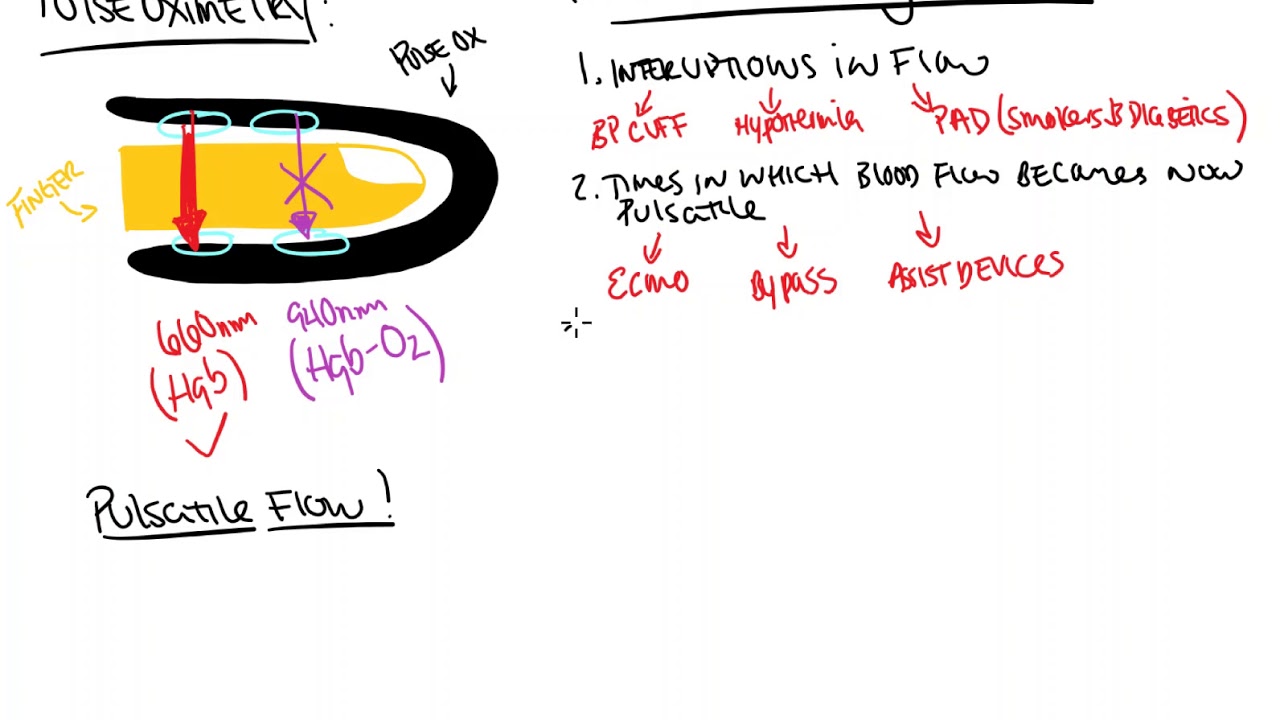 PULSE OXIMETRY!
PULSE OX
FINGER
660nm
(Hgb)
940nm
(Hgb-O2)
Pulsatile Flow!
1. INTERUPTIONS in Flow
BP CUFF
Hypothermia
PAD (smokers & DIABETICS)
2. Times IN WHICH BLOOD Flow BECOMES NON
Pulsatile
ECMO
Bypass
ASSIST DEVICES